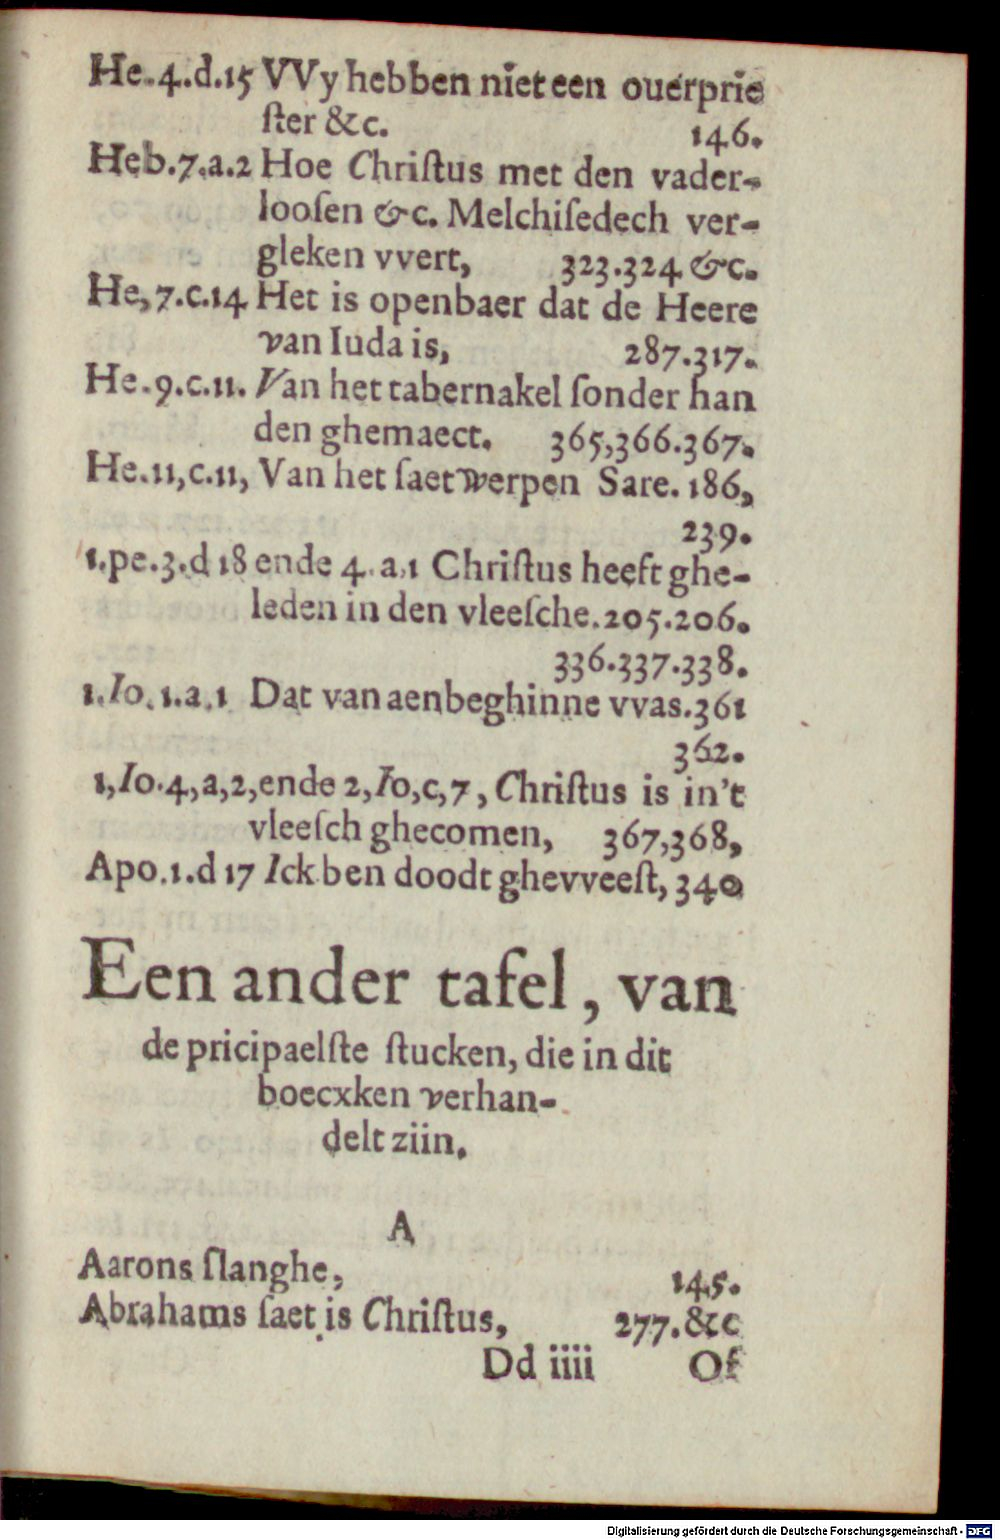 He.4.d.15 VVy hebben niet een ouerprie
ſter &c. 146.
Heb.7.a.2 Hoe Chriſtus met den vader-
looſen &c. Melchiſedech ver-
gleken vvert, 323.324 &c.
He,7.c.14 Het is openbaer dat de Heere
van Iuda is, 287.317.
He.9.c.11. Van het tabernakel ſonder han
den ghemaect. 365,366.367.
He.11,c.11, Van het ſaet werpen Sare. 186,
239.
1.pe.3.d 18 ende 4.a.1 Chriſtus heeft ghe-
leden in den vleeſche.205.206.
336.337.338.
1.Io.1.a.1 Dat van aenbeghinne vvas.361
362.
1,Io.4,a,2,ende 2,Io,c,7, Chriſtus is in't
vleeſch ghecomen, 367,368,
Apo.1.d 17 Ick ben doodt ghevveeſt, 340
Een ander tafel, van
de pricipaelſte ſtucken, die in dit
boecxken verhan-
delt ziin.
A
Aarons ſlanghe, 145.
Abrahams ſaet is Chriſtus, 277.&c
Dd iiii Of
Digitalisierung gefördert durch die Deutsche Forschungsgemeinschaft - DFG